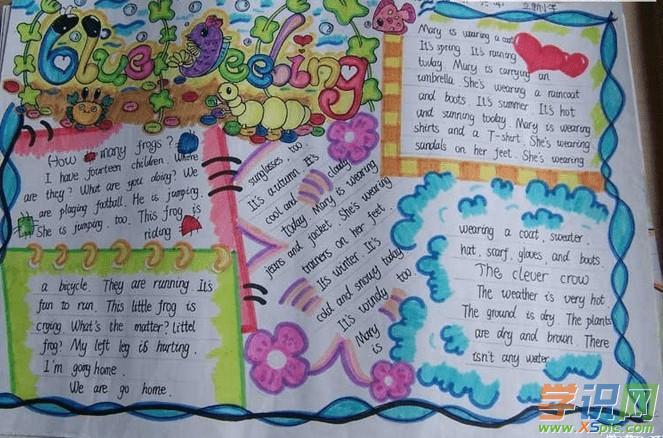 Blue Feeling
How many frogs?
I have fourteen children. Where
are they? What are you doing? We
are playing football. He is jumping.
She is jumping, too. This frog is
riding
a bicycle. They are running. It's
fun to run. This little frog is
crying. What's the matter? Littel
frog? My left leg is hurting.
I'm going home.
We are go home.
sunglasses, too.
It's autumn. It's
cool and cloudy
today. Mary is wearing
jeans and jacket. She's wearing
trainers on her feet.
It's winter. It's
cold and snowy today
It's windy too
Mary
is
Mary is wearing a coat
It's spring. It's raining
today. Mary is carrying an
umbrella. She's wearing a raincoat
and boots. It's summer. It's hot
and sunning today. Mary is wearing
shirts and a T-shirt. She's wearing
sandals on her feet. She's wearing
wearing a coat, sweater,
hat, scarf, gloves, and boots.
The clever crow
The weather is very hot
The ground is dry. The plants
are dry and brown. There
isn't any water.
学识网
www.XSpic.com